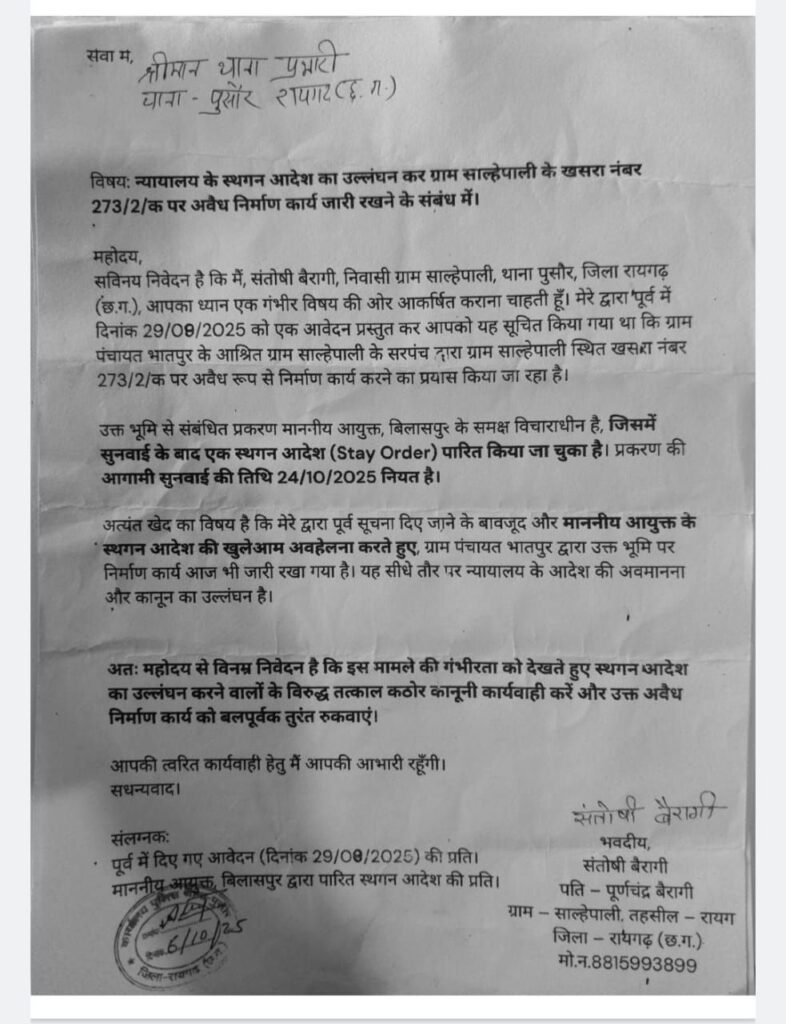 सेवा में,
श्रीमान थाना प्रभारी
थाना - पुसौर रायगढ़ (छ.ग.)
विषय: न्यायालय के स्थगन आदेश का उल्लंघन कर ग्राम साल्हेपाली के खसरा नंबर
273/2/क पर अवैध निर्माण कार्य जारी रखने के संबंध में।
महोदय,
सविनय निवेदन है कि मैं, संतोषी बैरागी, निवासी ग्राम साल्हेपाली, थाना पुसौर, जिला रायगढ़
(छ.ग.), आपका ध्यान एक गंभीर विषय की ओर आकर्षित कराना चाहती हूँ। मेरे द्वारा पूर्व में
दिनांक 29/09/2025 को एक आवेदन प्रस्तुत कर आपको यह सूचित किया गया था कि ग्राम
पंचायत भातपुर के आश्रित ग्राम साल्हेपाली के सरपंच द्वारा ग्राम साल्हेपाली स्थित खसरा नंबर
273/2/क पर अवैध रूप से निर्माण कार्य करने का प्रयास किया जा रहा है।
उक्त भूमि से संबंधित प्रकरण माननीय आयुक्त, बिलासपुर के समक्ष विचाराधीन है, जिसमें
सुनवाई के बाद एक स्थगन आदेश (Stay Order) पारित किया जा चुका है। प्रकरण की
आगामी सुनवाई की तिथि 24/10/2025 नियत है।
अत्यंत खेद का विषय है कि मेरे द्वारा पूर्व सूचना दिए जाने के बावजूद और माननीय आयुक्त के
स्थगन आदेश की खुलेआम अवहेलना करते हुए, ग्राम पंचायत भातपुर द्वारा उक्त भूमि पर
निर्माण कार्य आज भी जारी रखा गया है। यह सीधे तौर पर न्यायालय के आदेश की अवमानना
और कानून का उल्लंघन है।
अतः महोदय से विनम्र निवेदन है कि इस मामले की गंभीरता को देखते हुए स्थगन आदेश
का उल्लंघन करने वालों के विरुद्ध तत्काल कठोर कानूनी कार्यवाही करें और उक्त अवैध
निर्माण कार्य को बलपूर्वक तुरंत रुकवाएं।
आपकी त्वरित कार्यवाही हेतु मैं आपकी आभारी रहूँगी।
सधन्यवाद।
संलग्नक:
पूर्व में दिए गए आवेदन (दिनांक 29/09/2025) की प्रति।
माननीय आयुक्त, बिलासपुर द्वारा पारित स्थगन आदेश की प्रति।
संतोषी बैरागी
भवदीय,
संतोषी बैरागी
पति – पूर्णचंद्र बैरागी
ग्राम – साल्हेपाली, तहसील – रायग
जिला – रायगढ़ (छ.ग.)
मो.न.8815993899
6/10/25
जिला-रायगढ़ (छ.ग.)